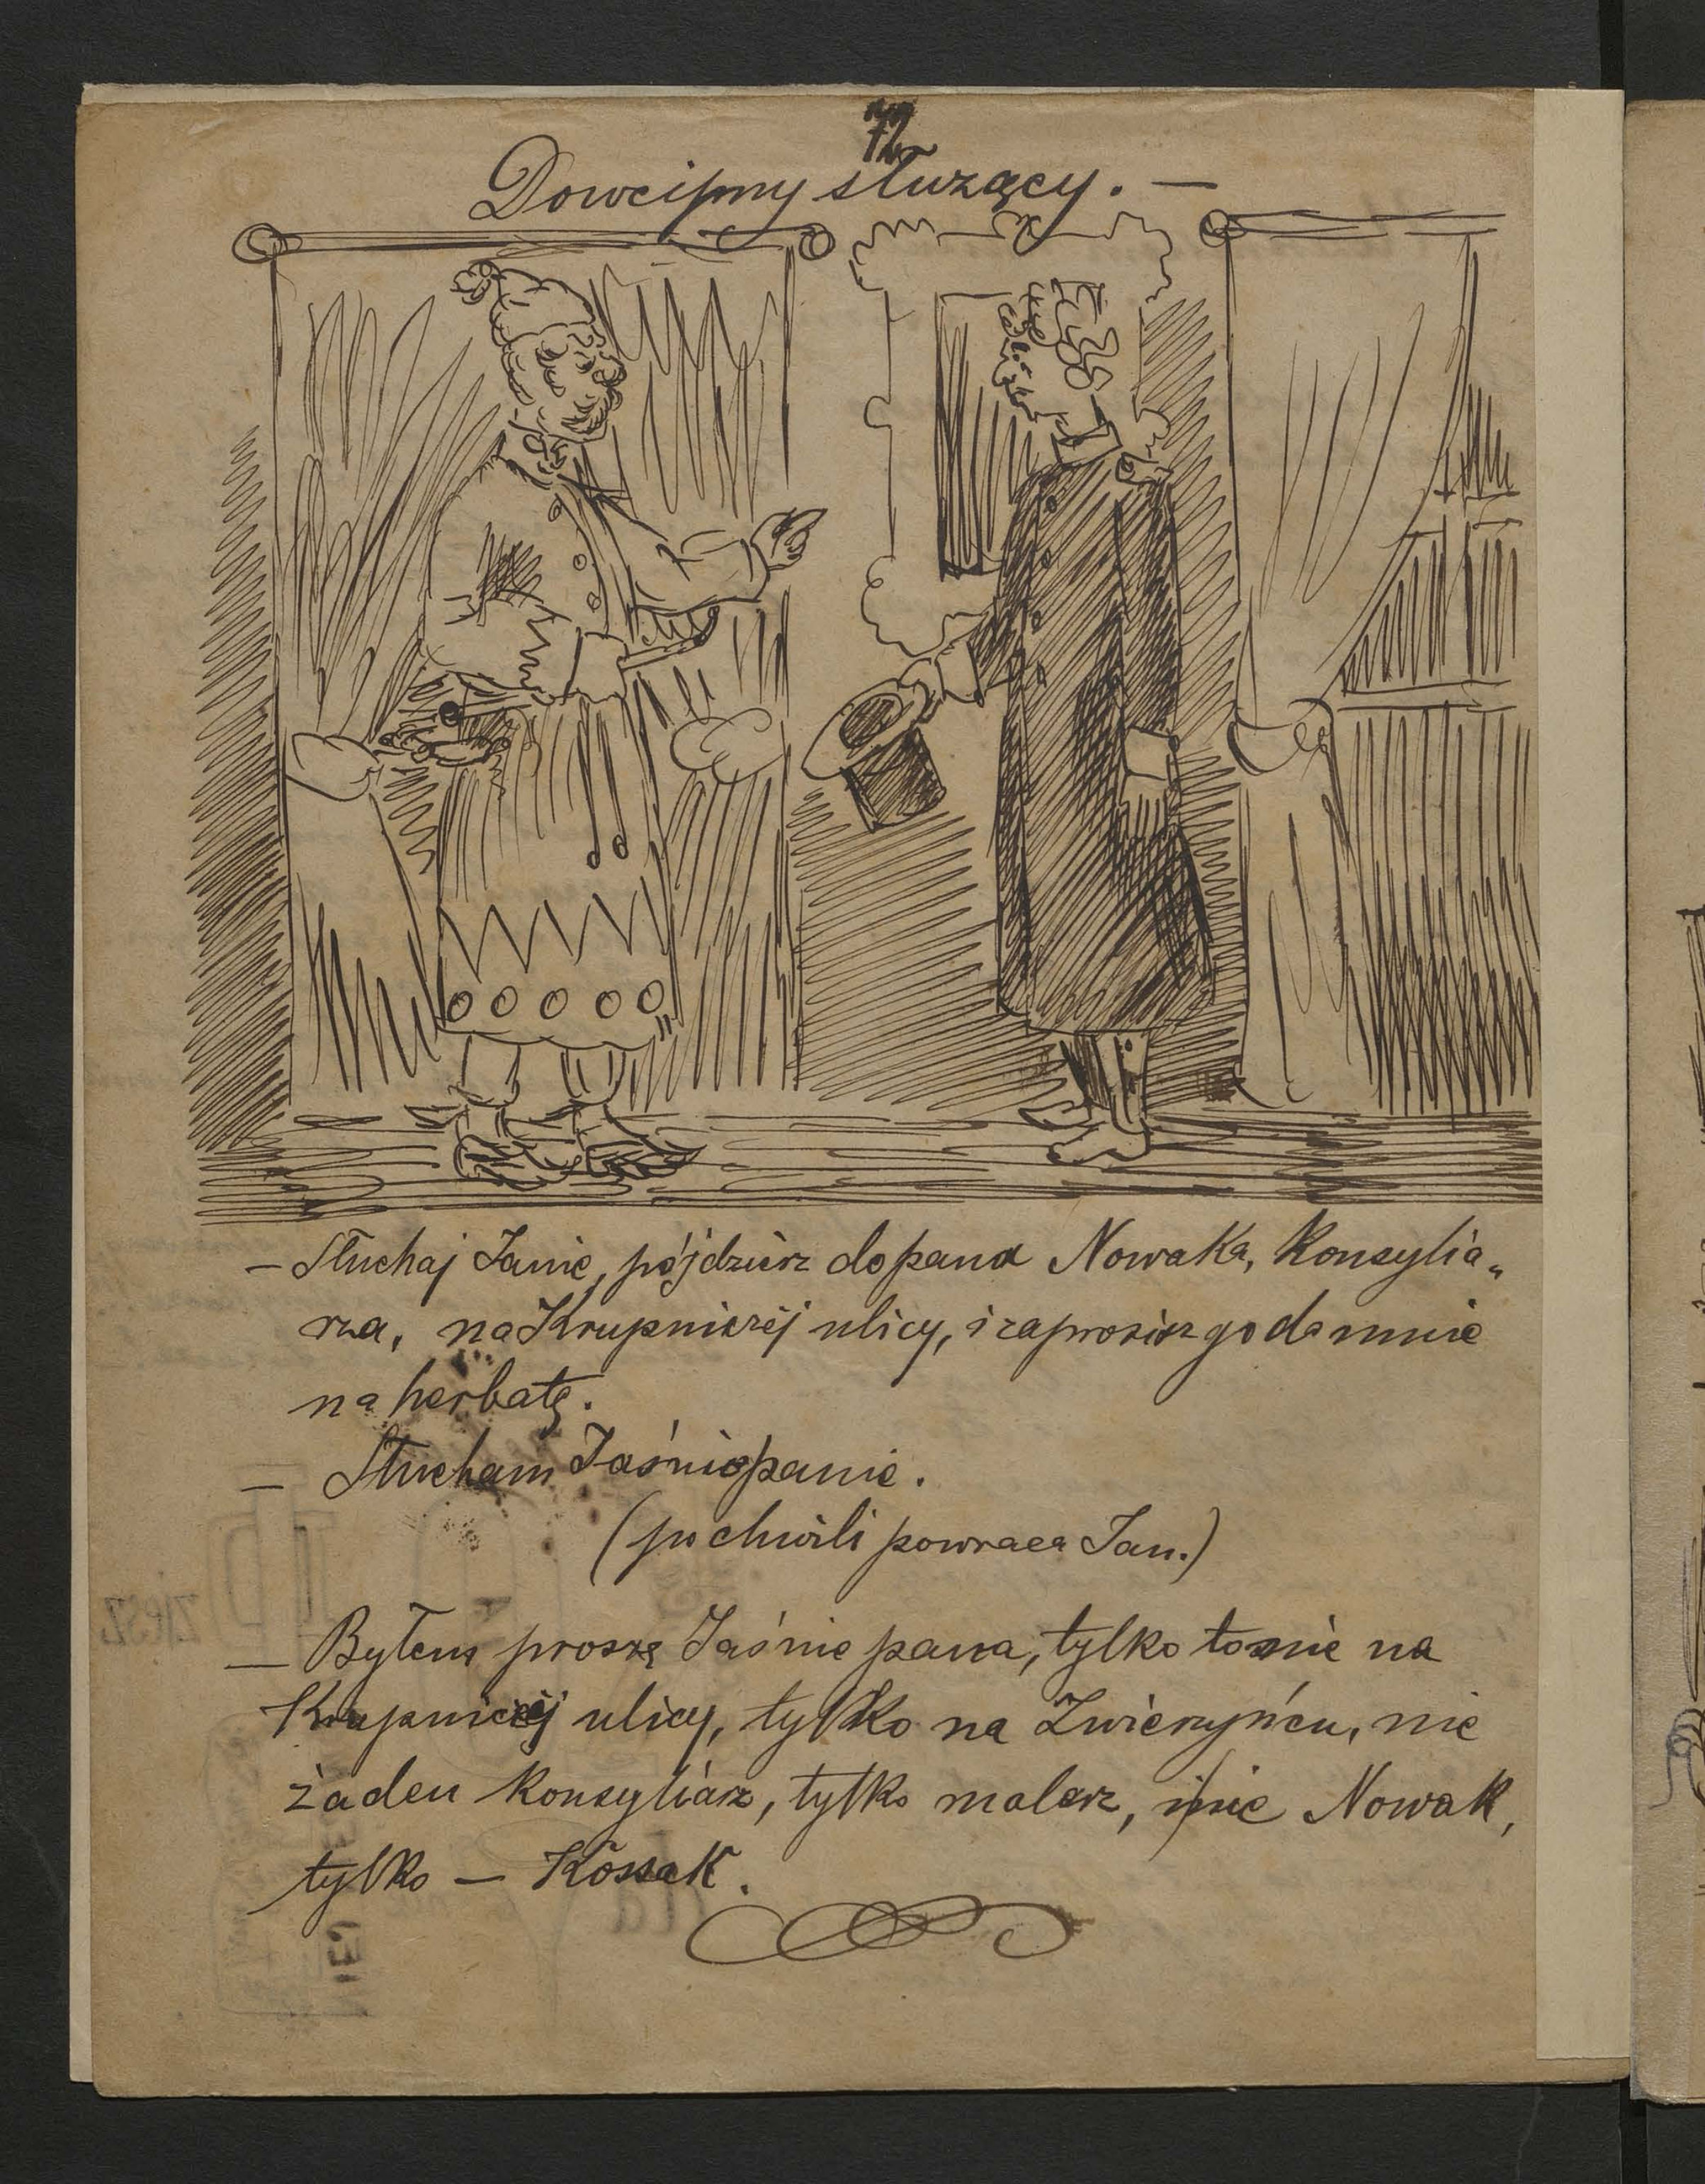 72
Dowcipny służący. —
— Słuchaj Janie, pójdziesz do pana Nowaka, Konsylia„
rza, na Krupniczéj ulicy, i zaprosisz go do mnie
na herbatę.
— Słucham Jaśniepanie.
(po chwili powraca Jan.)
— Byłem proszę Jaśnie pana, tylko to nie na
Krupniczéj ulicy, tylko na Zwierzyńcu, nie
żaden Konsyliarz, tylko malarz, i nie Nowak,
tylko — Kossak.